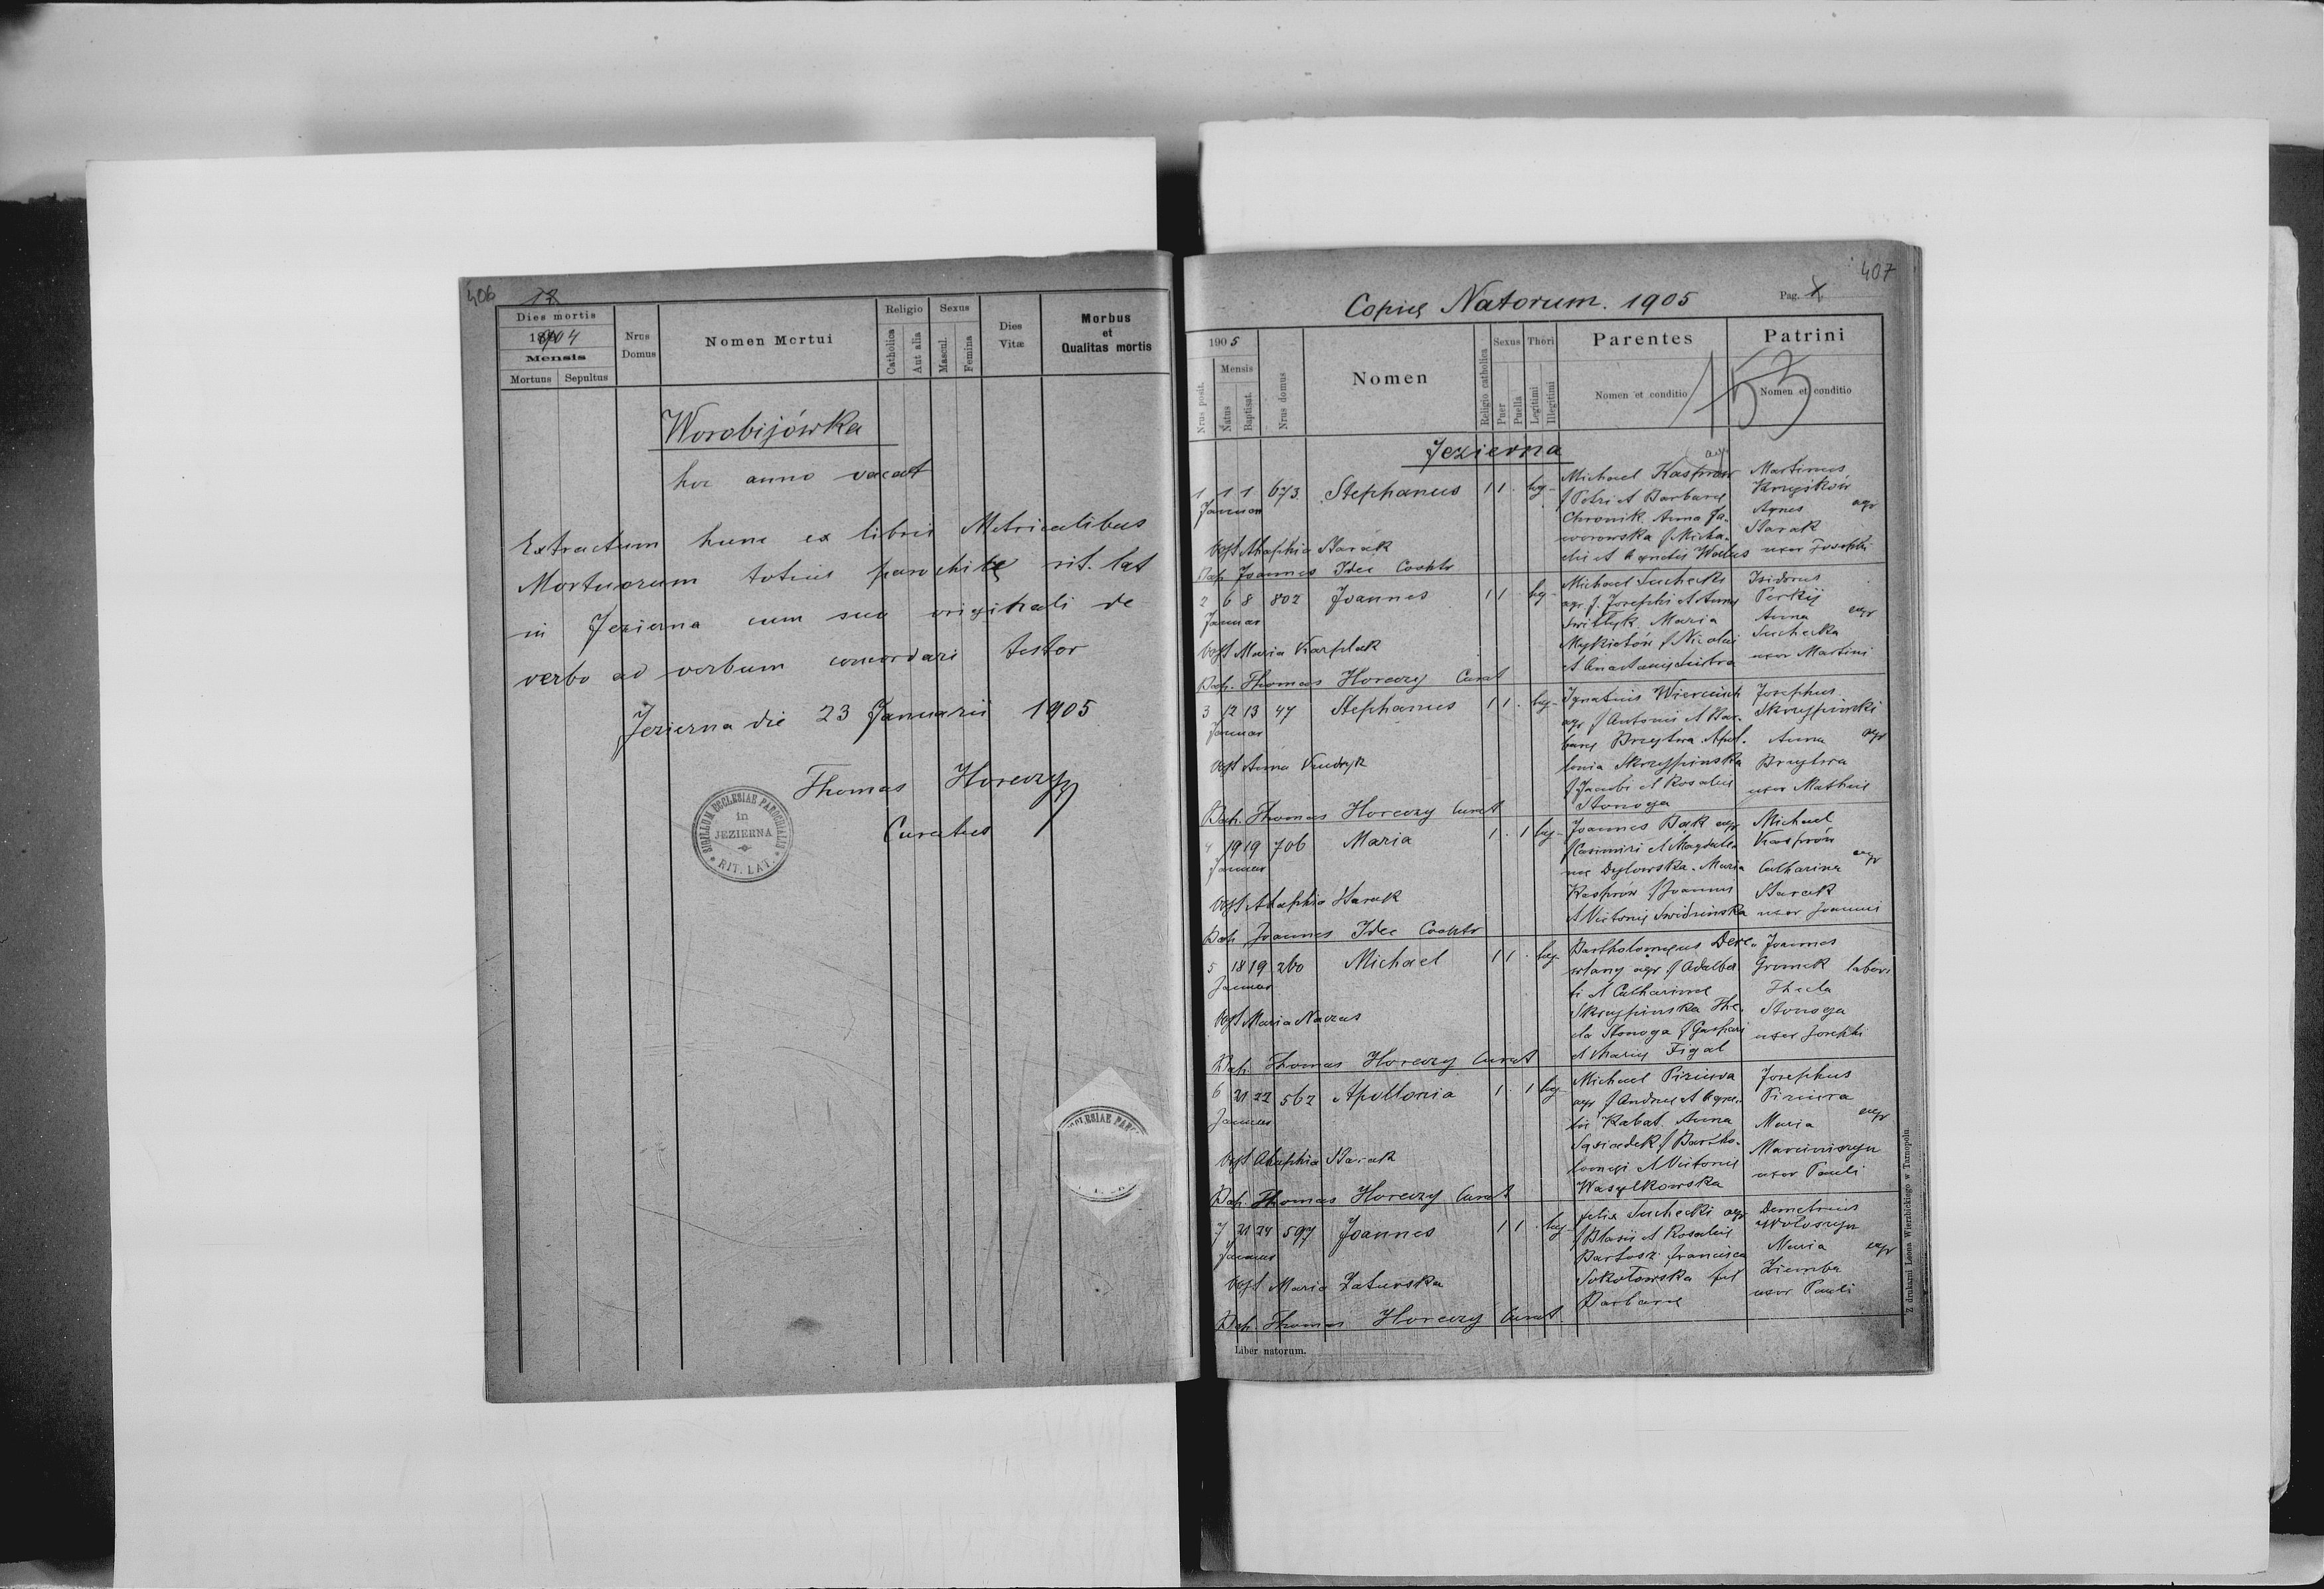 406
12
Dies mortis
1904
Mensis
Mortuus Sepultus
Nrus Domus
Nomen Mortui
Religio
Catholica
Aut alia
Sexus
Mascul.
Femina
Dies Vitæ
Morbus
et
Qualitas mortis
Worobijówka
hoc anno vacat
Extractum hunc ex libris Metricalibus
Mortuorum totius parochiae rit. lat
in Jezierna cum suo originali de
verbo ad verbum concordari testor
Jezierna die 23 Januarii 1905
Thomas Horeczy
Curatus
SIGILLUM ECCLESIAE PAROCHIALIS
in
JEZIERNA
RIT. LAT.
407
Copia Natorum. 1905
Pag.
1905
Nrus posit.
Mensis
Natus
Baptisat.
Nrus domus
Nomen
Religio catholica
Sexus
Puer
Puella
Thori
Legitimi
Illegitimi
Parentes
Nomen et conditio
Patrini
Nomen et conditio
153
Jezierna
1 1 1 673 Stephanus 1 1 leg
Januar
Michael Kasprów agr
f Petri et Barbara
Chronik. Anna Ja-
worowska f Micha-
elis et Agnetis
Martinus
Agnes agr
Starak
uxor Josephi
Obst Ahaphia Starak
Bap. Joannes Idec Coop
2 6 8 802 Joannes 1 1 leg
Januar
Michael Suchecki
agr f. Josephi et Anna
Maria
Mykietów f Nicolai
Isidorus
Perkij
Anna agr
Suchecka
uxor Martini
Obst Maria Karplak
Bap. Thomas Horeczy Curat
3 12 13 47 Stephanus 1 1 leg
Januar
Ignatius
agr f Antonii et Bar-
bara Brzytwa. Apol-
lonia Skrzypinska
f Jacobi et Rosalia
Stonoga
Josephus
Anna agr
Brzytwa
uxor Mathei
Obst Anna
Bap. Thomas Horeczy Curat
4 19 19 706 Maria 1 1 leg
Januar
Joannes Bąk agr
f Casimiri et Magdale-
na Dylowska. Maria
Kasprów f Joannis
Michael
Kasprów
Catharina agr
Starak
uxor Joannis
Obst Ahaphia Starak
Bap Joannes Idec Coop
5 18 19 260 Michael 1 1 leg
Januar
Bartholomaeus Dere-
wlany agr f Adalber
ti et Catharina
Skrzypinska The-
cla Stonoga f Gaspari
et Maria Figal
Joannes
Gromek labor
Thecla
Stonoga
uxor Josephi
Obst Maria
Bap. Thomas Horeczy Curat
6 21 22 562 Apollonia 1 1 leg
Januar
Michael Piziura
agr f Andrea et Agne-
tis Kabat. Anna
Sąsiadek f Bartho-
lomaei et Victoria
Wasylkowska
Josephus
Piziura
Maria agr
Marciniszyn
uxor Pauli
Obst Ahaphia Starak
Bap. Thomas Horeczy Curat
7 21 24 597 Joannes 1 1 leg
Januar
Felix Suchecki agr
f Blasii et Rosalia
Bartosz. Francisca
Sokołowska
Barbara
Demetrius
Wołoszyn
Maria agr
Ziemba
uxor Pauli
Obst Maria Zaturska
Bap. Thomas Horeczy Curat
Liber natorum.
Z drukarni Leona Wierzbickiego w Tarnopolu